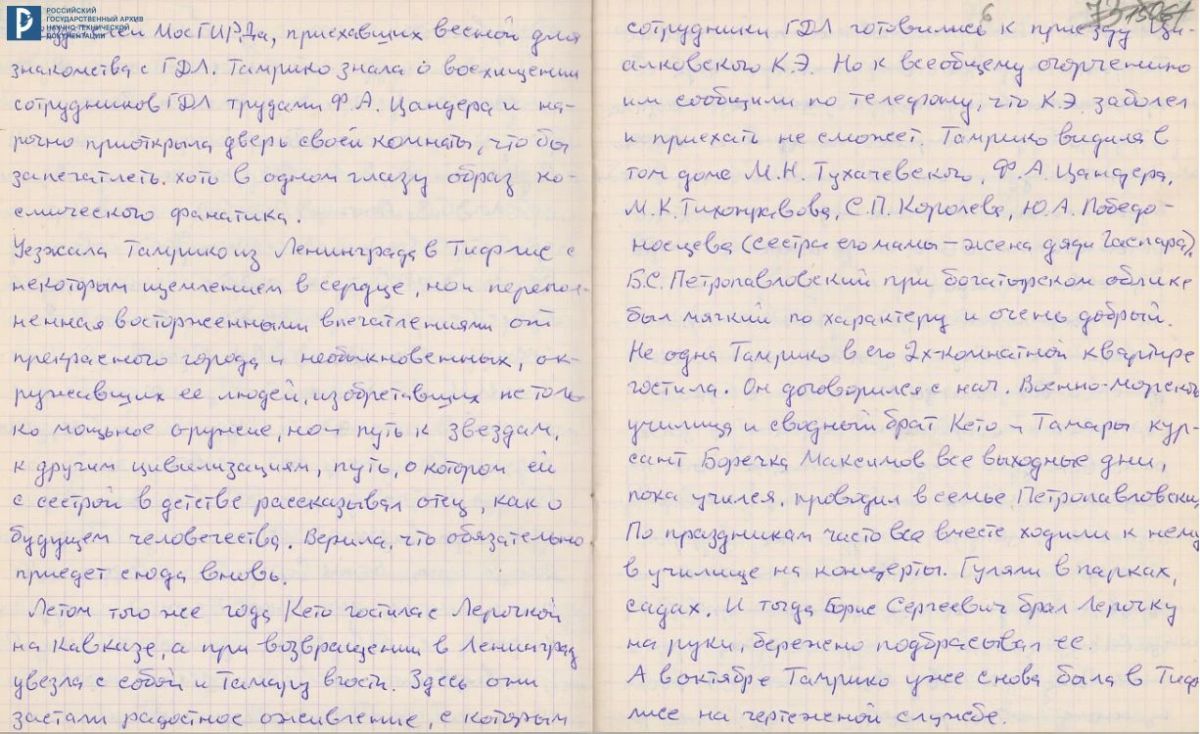 РОССИЙСКИЙ
ГОСУДАРСТВЕННЫЙ АРХИВ
НАУЧНО-ТЕХНИЧЕСКОЙ
ДОКУМЕНТАЦИИ
МосГИРДа, приехавших весной для
знакомства с ГДЛ. Тамрико знала о восхищении
сотрудников ГДЛ трудами Ф.А. Цандера и на-
рочно приоткрыла дверь своей комнаты, что бы
запечатлеть хоть в одном глазу образ ко-
смического фанатика.
Уезжала Тамрико из Ленинграда в Тифлис с
некоторым щемлением в сердце, но и перепол-
ненная восторженными впечатлениями от
прекрасного города и необыкновенных, ок-
ружавших ее людей, изобретавших не толь
ко мощное оружие, но и путь к звездам,
к другим цивилизациям, путь, о котором ей
с сестрой в детстве рассказывал отец, как о
будущем человечества. Верила, что обязательно
приедет сюда вновь.
Летом того же года Кето гостила с Лерочкой
на Кавказе, а при возвращении в Ленинград
увезла с собой и Тамару в гости. Здесь они
застали радостное оживление, с которым
6
сотрудники ГДЛ готовились к приезду Ци-
алковского К.Э. Но к всеобщему огорчению
им сообщили по телефону, что К.Э. заболел
и приехать не сможет. Тамрико видела в
том доме М.Н. Тухачевского, Ф.А. Цандера,
М.К. Тихонравова, С.П. Королева, Ю.А. Победо-
носцева (сестра его мамы – жена дяди Гаспара).
Б.С. Петропавловский при богатырском облике
был мягкий по характеру и очень добрый.
Не одна Тамрико в его 2х-комнатной квартире
гостила. Он договорился с нач. Военно-морского
училища и сводный брат Кето и Тамары кур-
сант Боречка Максимов все выходные дни,
пока учился, проводил в семье Петропавловских
По праздникам часто все вместе ходили к нему
в училище на концерты. Гуляли в парках,
садах. И тогда Борис Сергеевич брал Лерочку
на руки, бережно подбрасывал ее.
А в октябре Тамрико уже снова была в Тиф
лисе на чертежной службе.